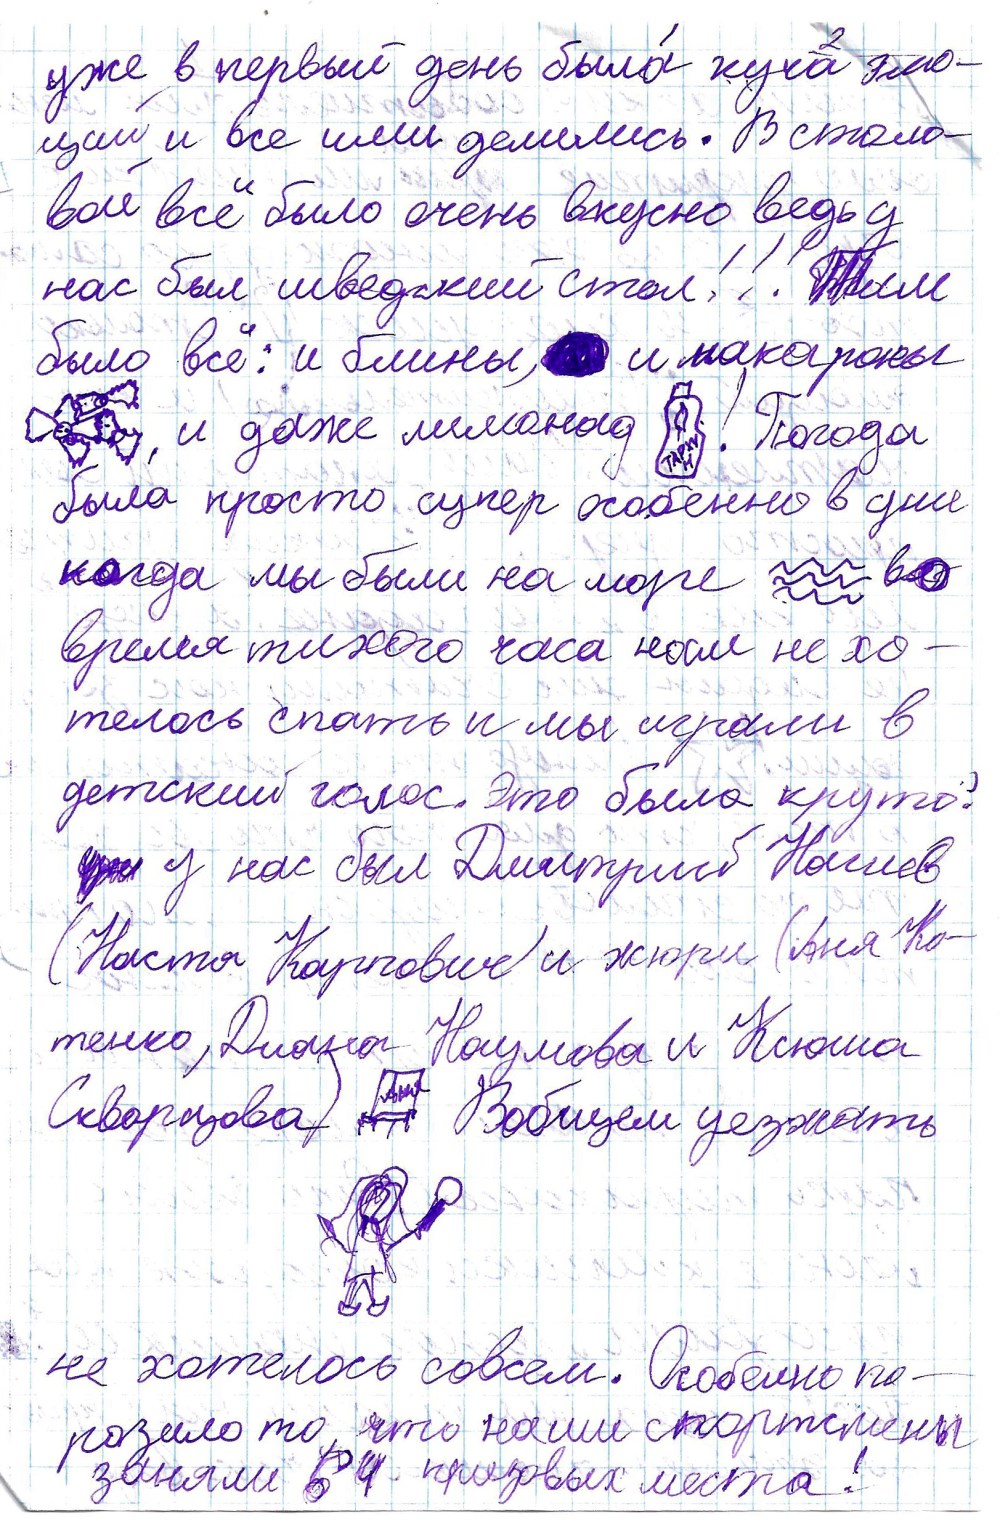 уже в первый день была куча эмо-
ций и все ими делились. В столо-
вой всё было очень вкусно ведь у
нас был шведский стол!!! Там
было всё: и блины, и макароны
, и даже лимонад ТАРХУН ! Погода
была просто супер особенно в дни
когда мы были на море во
время тихого часа нам не хо-
телось спать и мы играли в
детский голос. Это было круто!
у нас был Дмитрий Нагиев
(Настя Карпович) и жюри (Аня Ко-
тенко, Диана Наумова и Ксюша
Скварцова) Вобщем уезжать
не хотелось совсем. Особенно по-
разило то, что наши спортсмены
заняли призовых места!